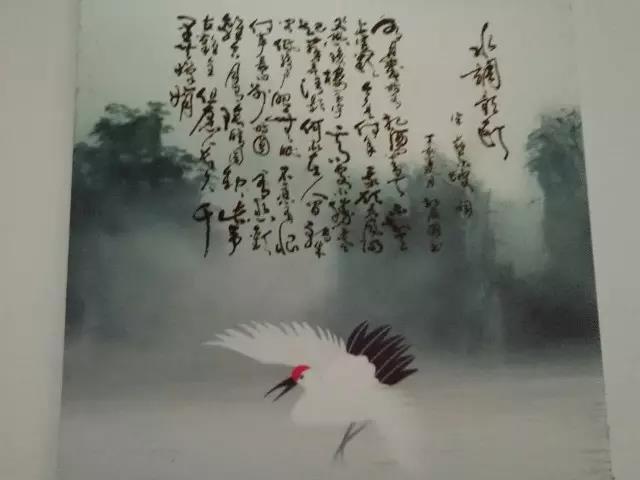 水調歌頭
明月幾時有把酒問青天不知天
上宮闕今夕是何年我欲乘風歸
去又恐瓊樓玉宇高處不勝寒
起舞弄清影何似在人間轉朱
閣低綺戶照無眠不應有恨
何事長向別時圓人有悲歡
離合月有陰晴圓缺此事
古難全但願人長久千
里共嬋娟